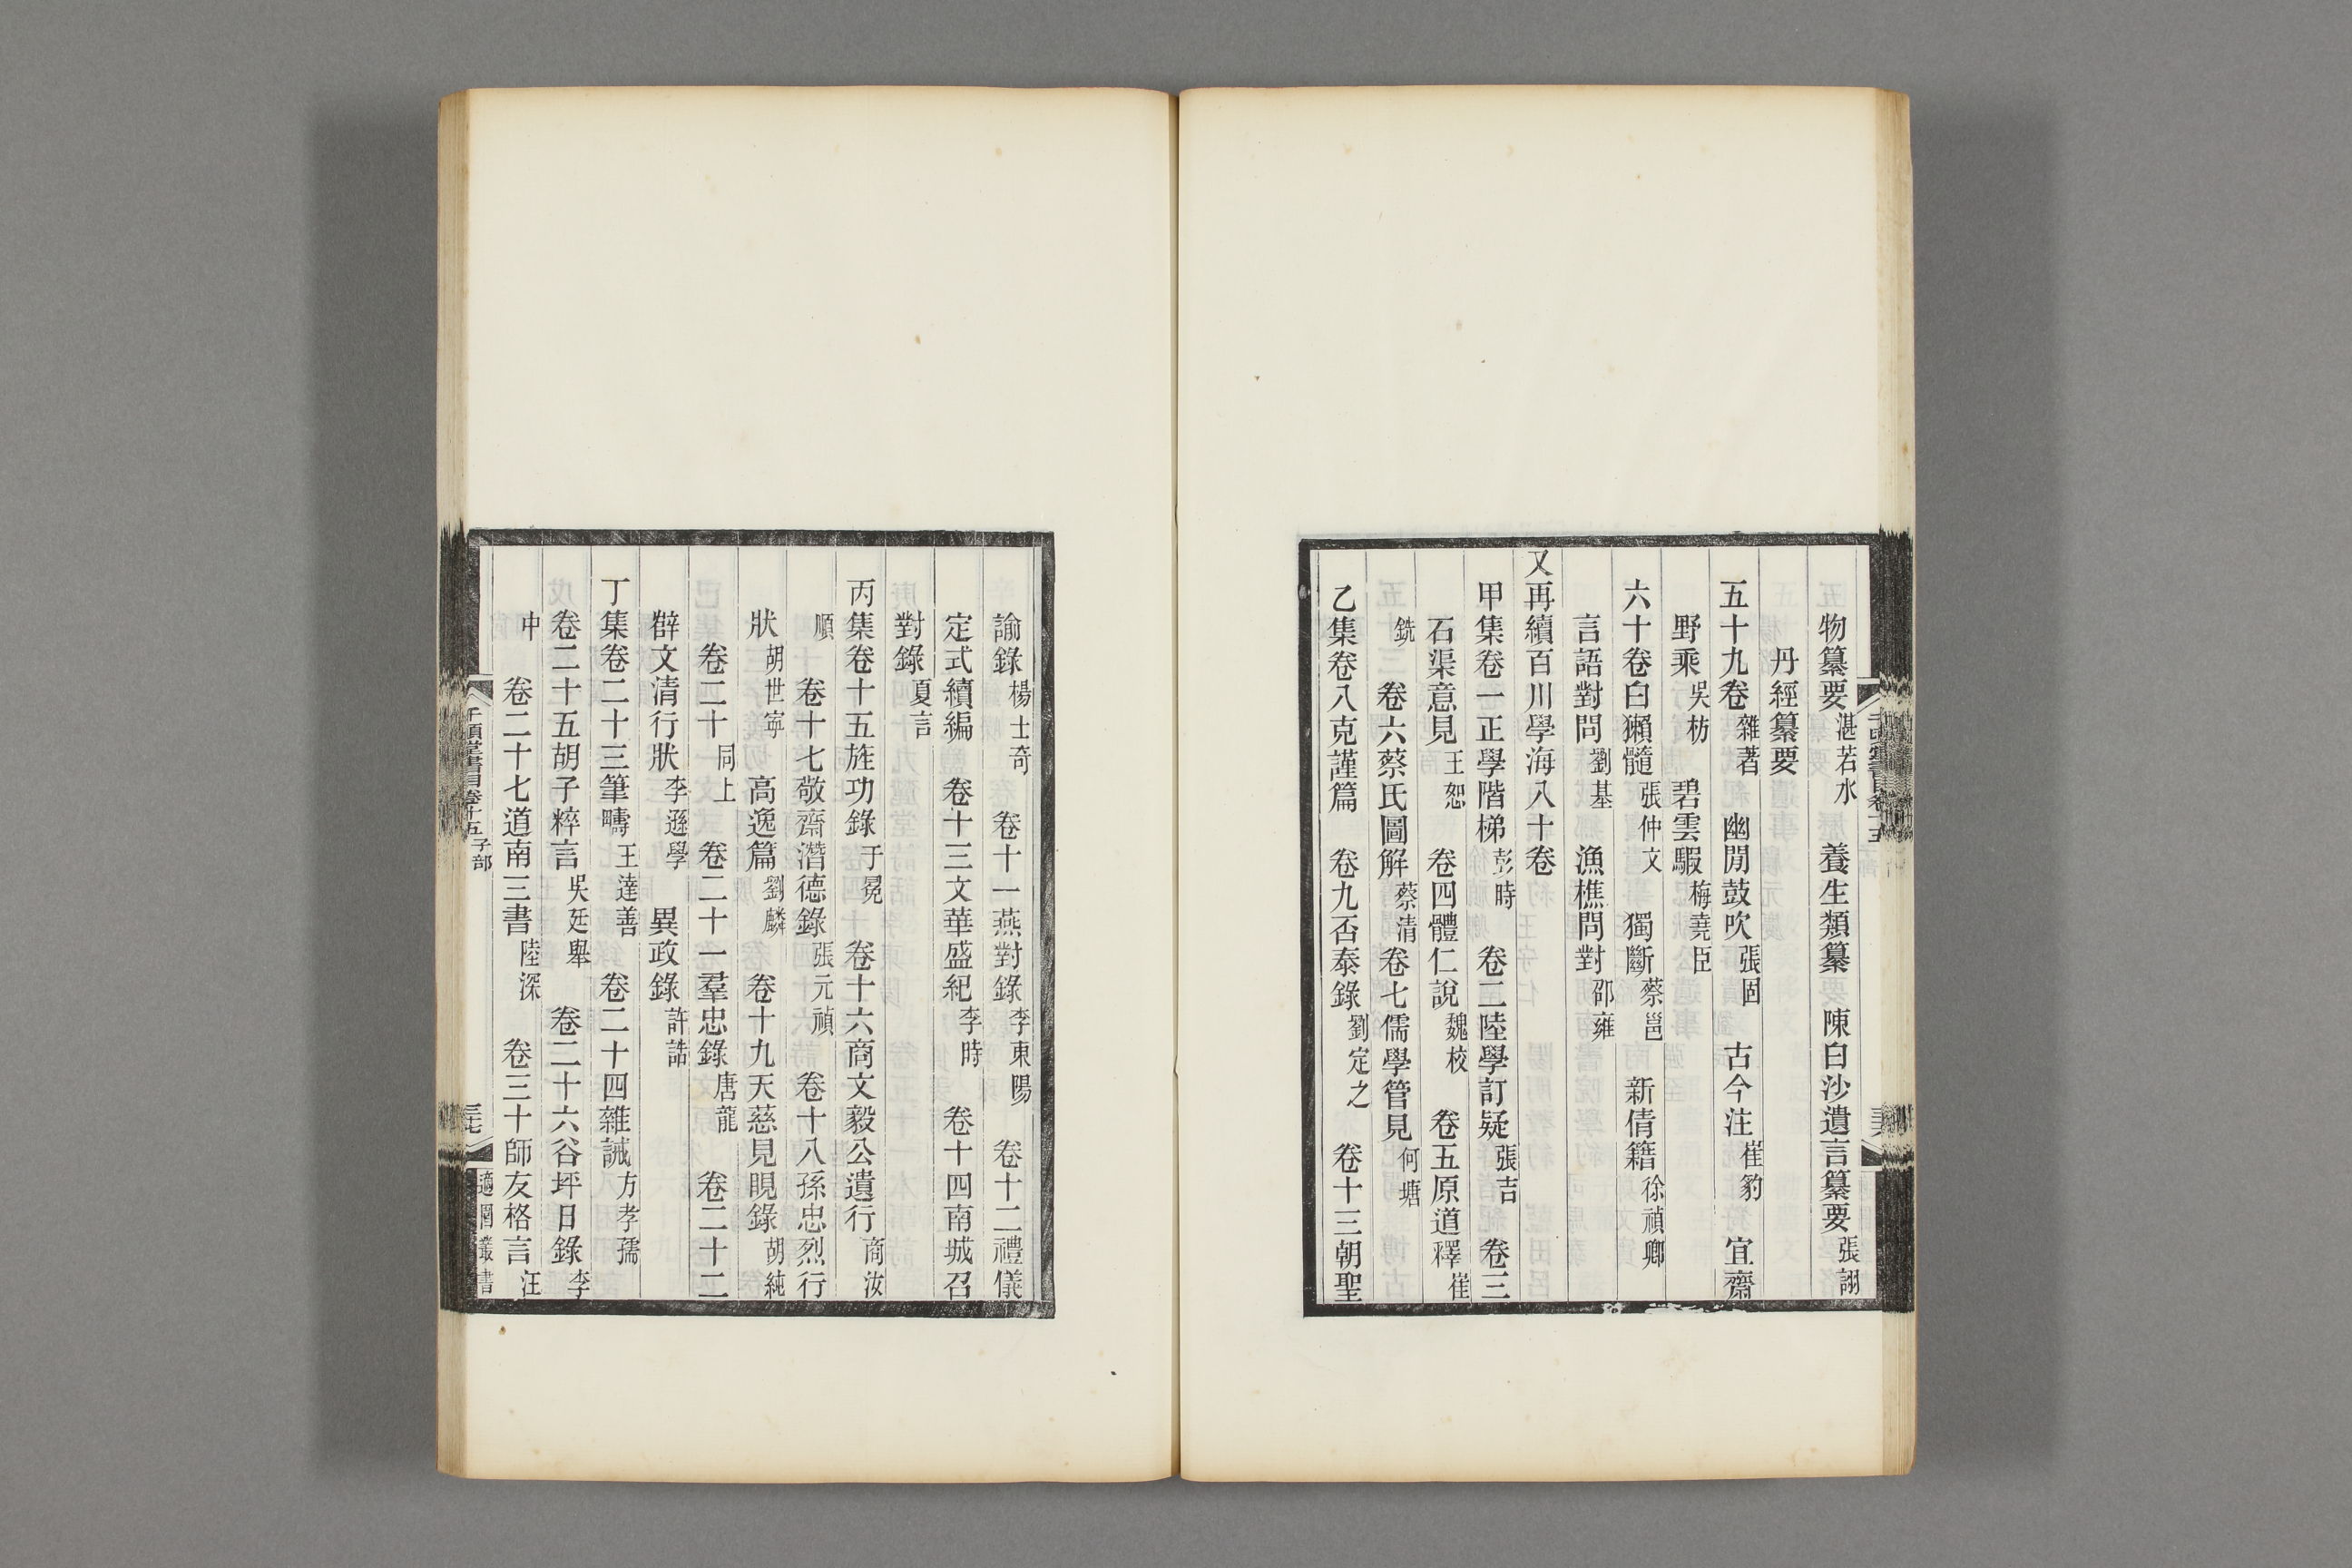 物纂要湛若水　養生類纂　陳白沙遺言纂要張詡
丹經纂要
五十九卷雜著　幽閒鼓吹張固　古今注崔豹　宜齋
野乘吳枋　碧雲騢梅堯臣
六十卷白獺髓張仲文　獨斷蔡邕　新倩籍徐禎卿
言語對問劉基　漁樵問對邵雍
又再續百川學海八十卷
甲集卷一正學階梯彭時　卷二陸學訂疑張吉　卷三
石渠意見王恕　卷四體仁說魏校　卷五原道釋崔
銑　卷六蔡氏圖解蔡清　卷七儒學管見何塘
乙集卷八克謹篇　卷九否泰錄劉定之　卷十三朝聖
諭錄楊士奇　卷十一燕對錄李東陽　卷十二禮儀
定式續編　卷十三文華盛紀李時　卷十四南城召
對錄夏言
丙集卷十五旌功錄于冕　卷十六商文毅公遺行商汝
順　卷十七敬齋潛德錄張元禎　卷十八孫忠烈行
狀胡世寧　高逸篇劉麟　卷十九天慈見睍錄胡純
卷二十同上　卷二十一羣忠錄唐龍　卷二十二
辥文清行狀李遜學　異政錄許誥
丁集卷二十三筆疇王達善　卷二十四雜誡方孝孺
卷二十五胡子粹言吳廷舉　卷二十六谷坪日錄李
中　卷二十七道南三書陸深　卷三十師友格言汪
千頃堂書目卷十五　子部　三七　適園叢書